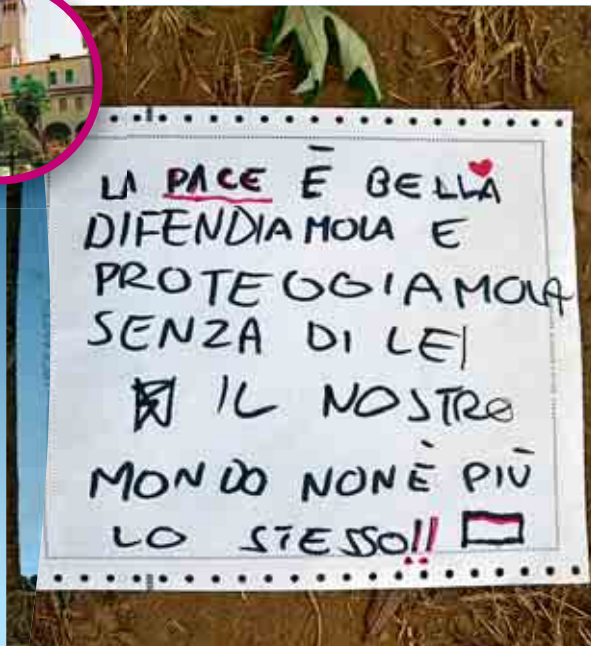 LA PACE È BELLA
DIFENDIAMOLA E
PROTEGGIAMOLA
SENZA DI LEI
IL NOSTRO
MONDO NON È PIÙ
LO STESSO!!